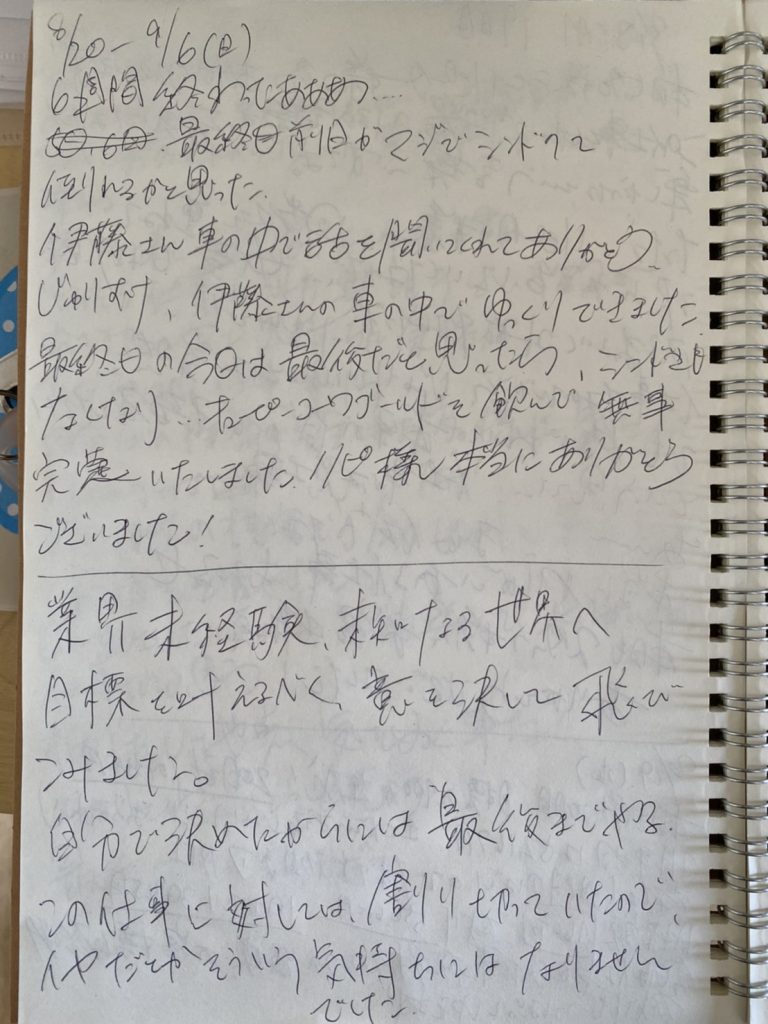 8/20-9/6(日)
6週間終わったぁぁぁっ....
最終日前日がマジでシンドクて
倒れるかと思った.
伊藤さん車の中で話を聞いてくれてありがとう、
じゅりすけ、伊藤さんの車の中でゆっくりできました.
最終日の今日は最後だと思ったら、シンドさも
なくなり...キューピーコーワゴールドを飲んで無事
完走いたしました. リピ様、本当にありがとう
ございました!
業界未経験、未知なる世界へ
目標を叶えるべく、意を決して飛び
こみました。
自分で決めたからには最後までやる.
この仕事に対しては、割り切っていたので、
イヤだとかそういう気持ちにはなりません
でした.